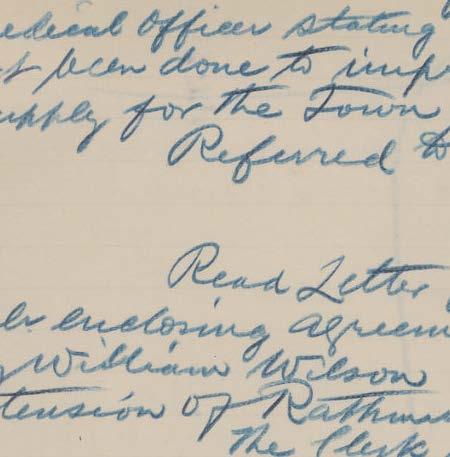 edical Officer stating
t been done to imp
upply for the Town
Referred to
Read Letter
enclosing agreem
William Wilson
tension of Rathm
The Clerk